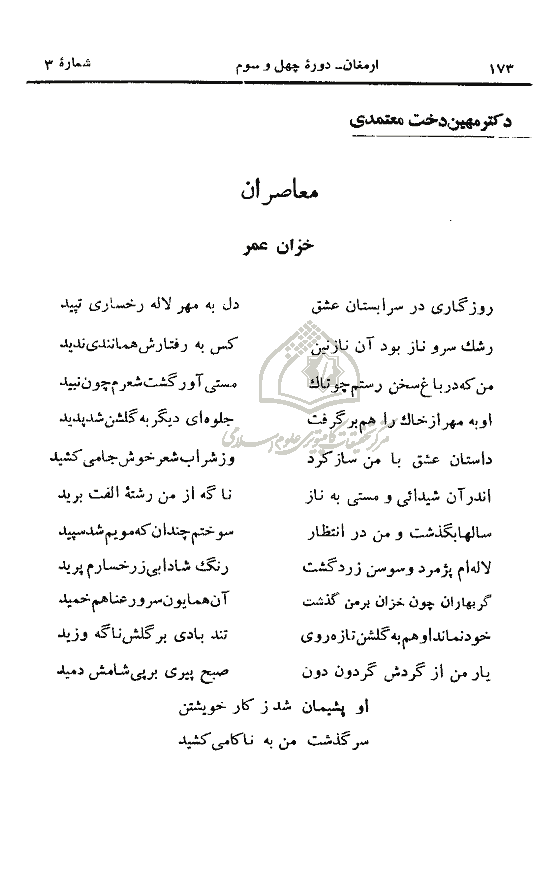 ۱۷۳ ارمغان ـ دورهٔ چهل و سوم شمارهٔ ۳
دکتر مهین‌دخت معتمدی
معاصران
خزان عمر
روزگاری در سرابستان عشق دل به مهر لاله رخساری تپید
رشك سرو ناز بود آن نازنین کس به رفتارش همانندی ندید
من که در باغ سخن رستم چو تاك مستی آور گشت شعرم چون نبید
او به مهر از خاك را هم بر گرفت جلوه‌ای دیگر به گلشن شد پدید
داستان عشق با من ساز کرد وز شراب شعر خوش جامی کشید
اندر آن شیدائی و مستی به ناز نا گه از من رشتهٔ الفت برید
سالها بگذشت و من در انتظار سوختم چندان که مویم شد سپید
لاله‌ام پژمرد و سوسن زرد گشت رنگ شادابی ز رخسارم پرید
گر بهاران چون خزان بر من گذشت آن همایون سرو رعنا هم خمید
خود نماند او هم به گلشن تازه روی تند بادی بر گلش ناگه وزید
یار من از گردش گردون دون صبح پیری بر پی شامش دمید
او پشیمان شد ز کار خویشتن
سر گذشت من به ناکامی کشید
مرکز تحقیقات کامپیوتری علوم اسلامی